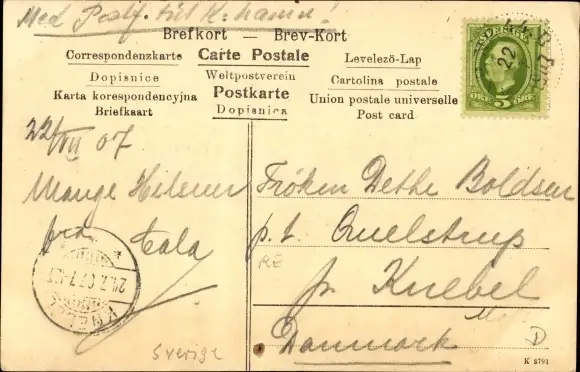 Med Postf. till K:hamn!
Brefkort — Brev-Kort
Correspondenzkarte Carte Postale Levelező-Lap
Dopisnice Weltpostverein Cartolina postale
Karta korespondencyjna Postkarte Union postale universelle
Briefkaart Dopisnica Post card
22/VII 07
Mange Hilsner
fra Cala
Frøken Dethe Boldsen
p. t. Quelstrup
pr Knebel
Danmark
KNEBEL
22
5 ÖRE
RE
Sverige
D
K 8791